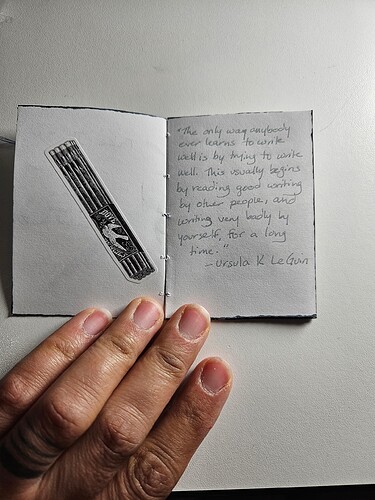 "The only way anybody
ever learns to write
well is by trying to write
well. This usually begins
by reading good writing
by other people, and
writing very badly by
yourself, for a long
time."
-Ursula K LeGuin